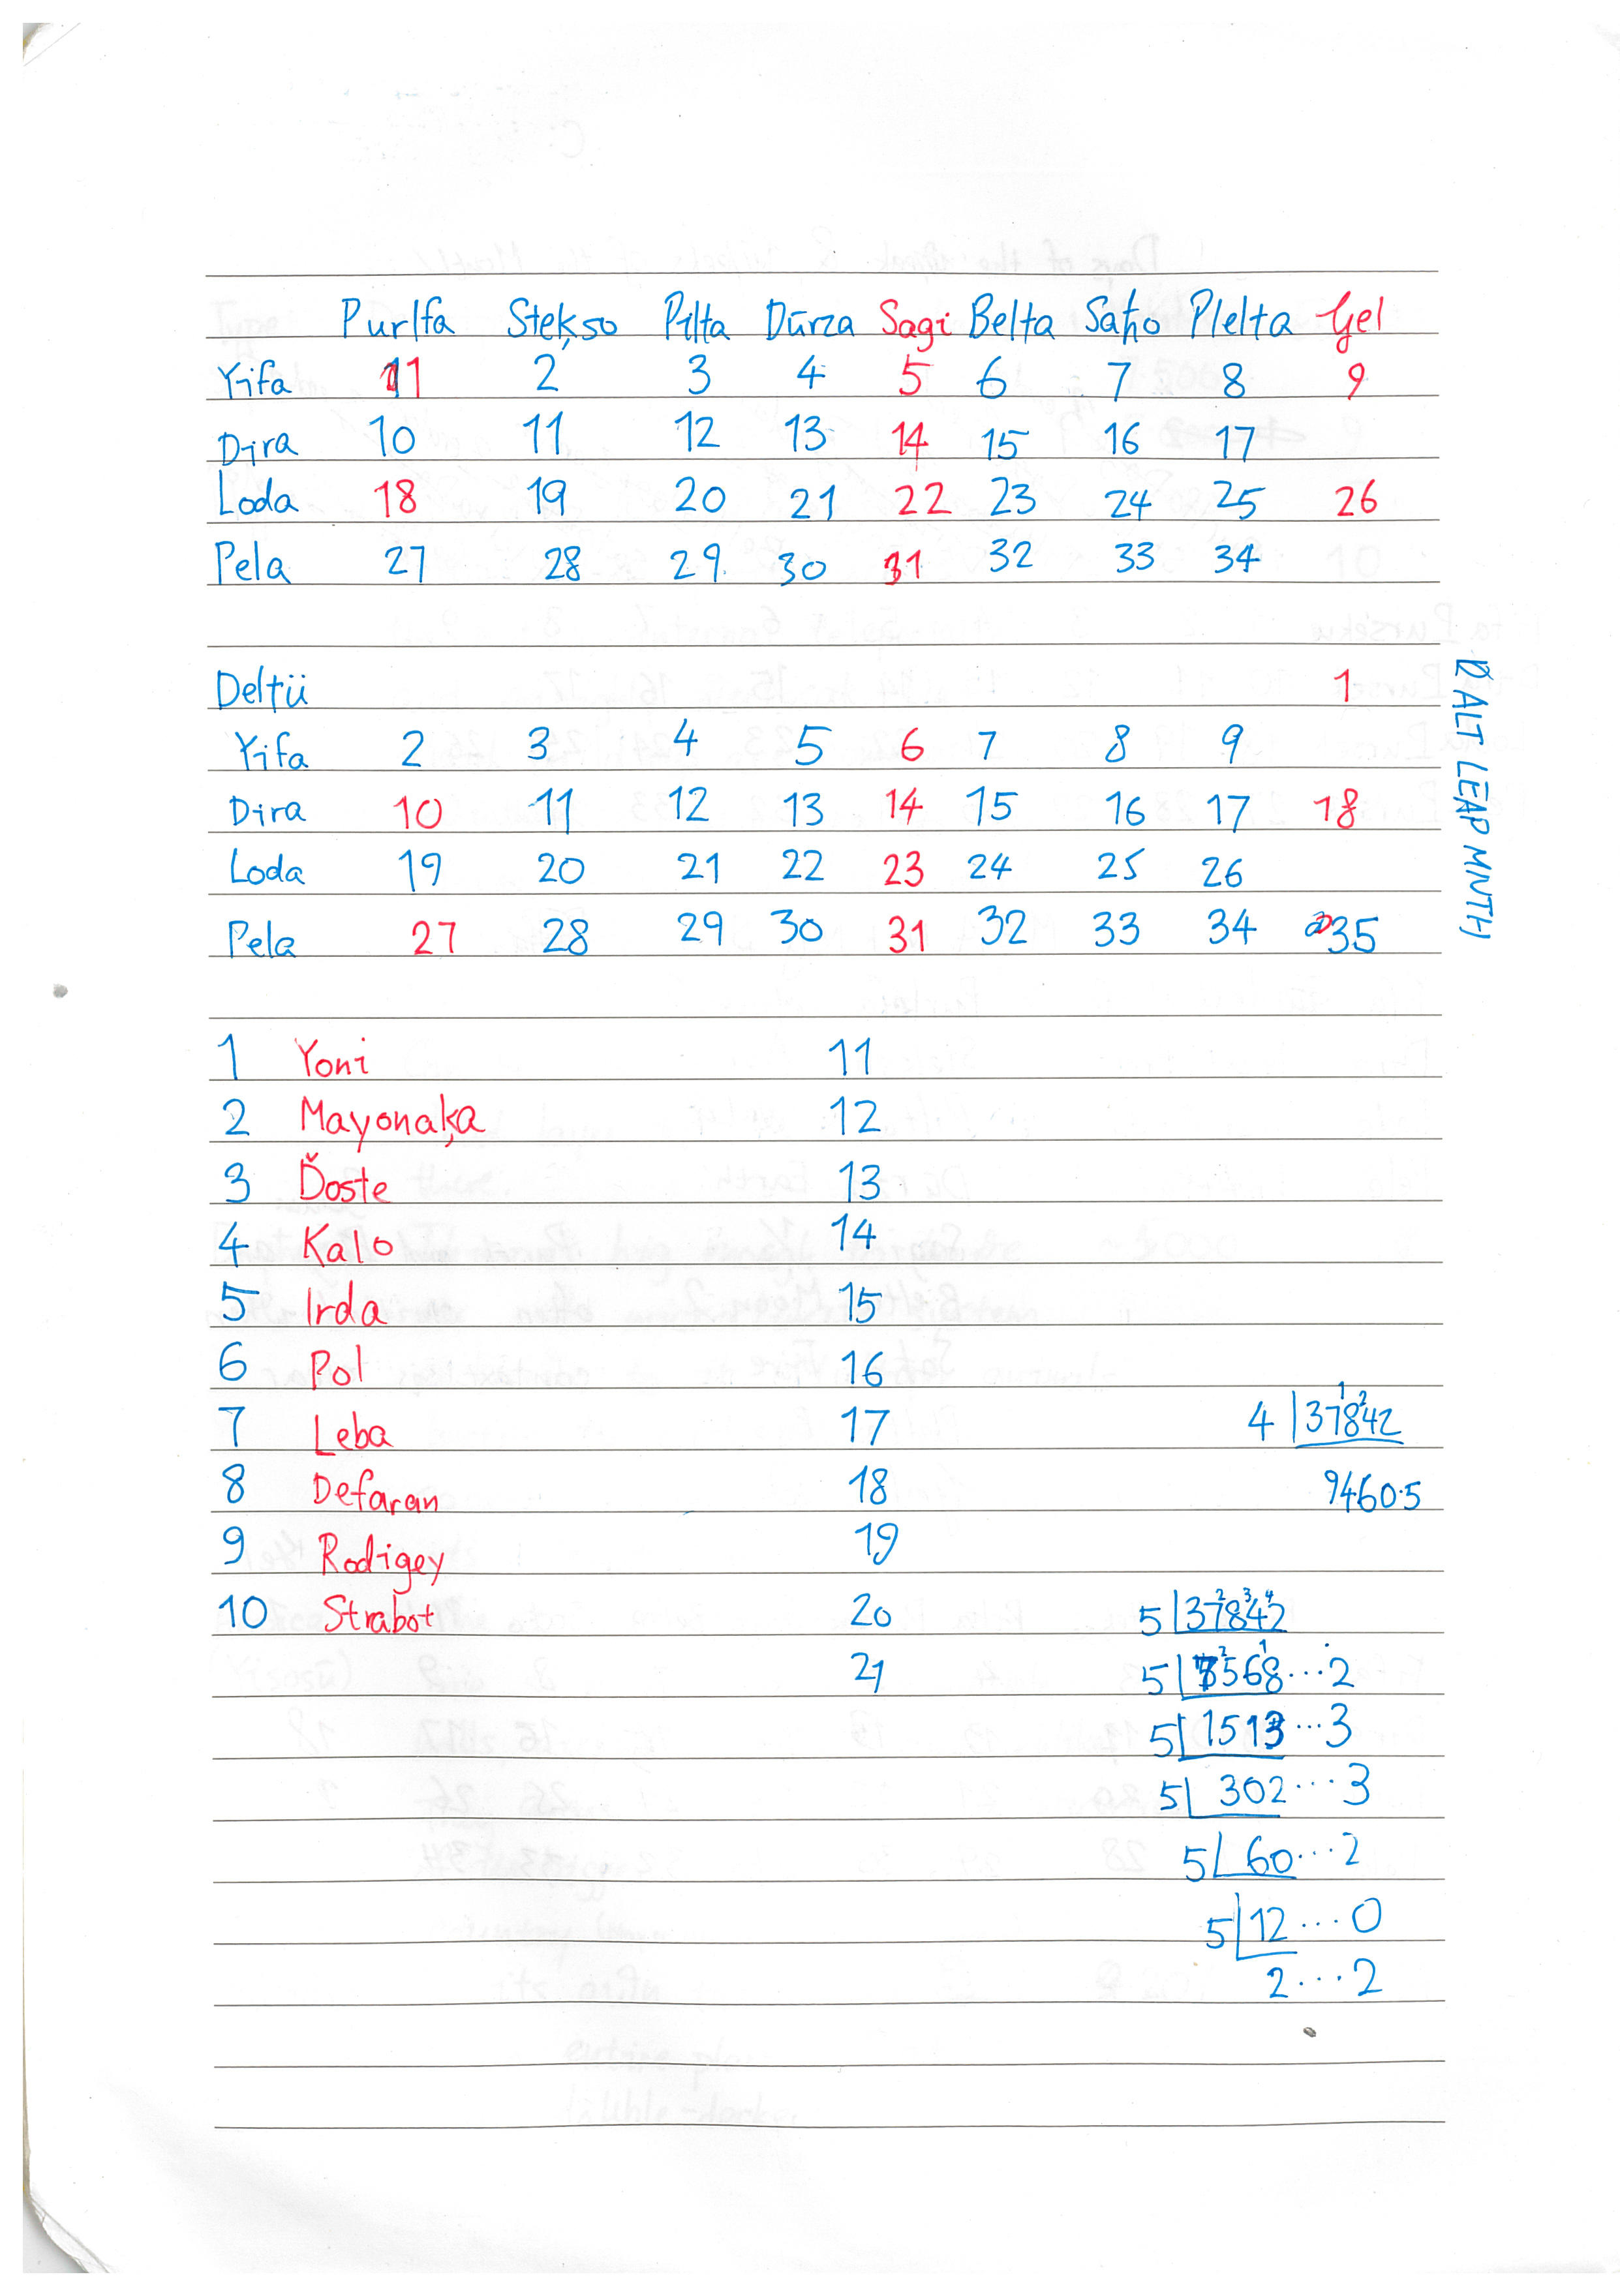 Purlfa Stekşo Pilta Dūrza Sagi Belta Saħo Plelta Gel
Yifa 11 2 3 4 5 6 7 8 9
Dira 10 11 12 13 14 15 16 17
Loda 18 19 20 21 22 23 24 25 26
Pela 27 28 29 30 31 32 33 34
Deltü 1
Yifa 2 3 4 5 6 7 8 9
Dira 10 11 12 13 14 15 16 17 18
Loda 19 20 21 22 23 24 25 26
Pela 27 28 29 30 31 32 33 34 35
ALT LEAP MNTH
1 Yoni 11
2 Mayonaķa 12
3 Ďoste 13
4 Kalo 14
5 Irda 15
6 Pol 16
7 Leba 17
4 37842
8 Defaran 18
9460.5
9 Rodigey 19
10 Strabot 20
5 37842
21
5 7568...2
5 1513...3
5 302...3
5 60...2
5 12...0
2...2